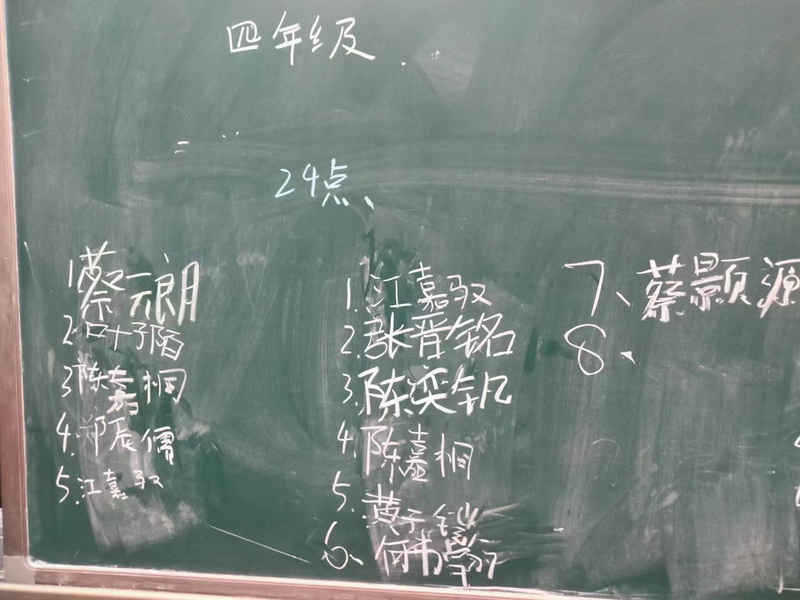 四年级
24点、
1蔡元朗
2叶子陌
3陈嘉桐
4.邓辰儒
5.江嘉驭
1.江嘉驭
2.张晋铭
3.陈奕钒
4.陈嘉桐
5.黄子铠
6、何书
7、蔡颢源
8、